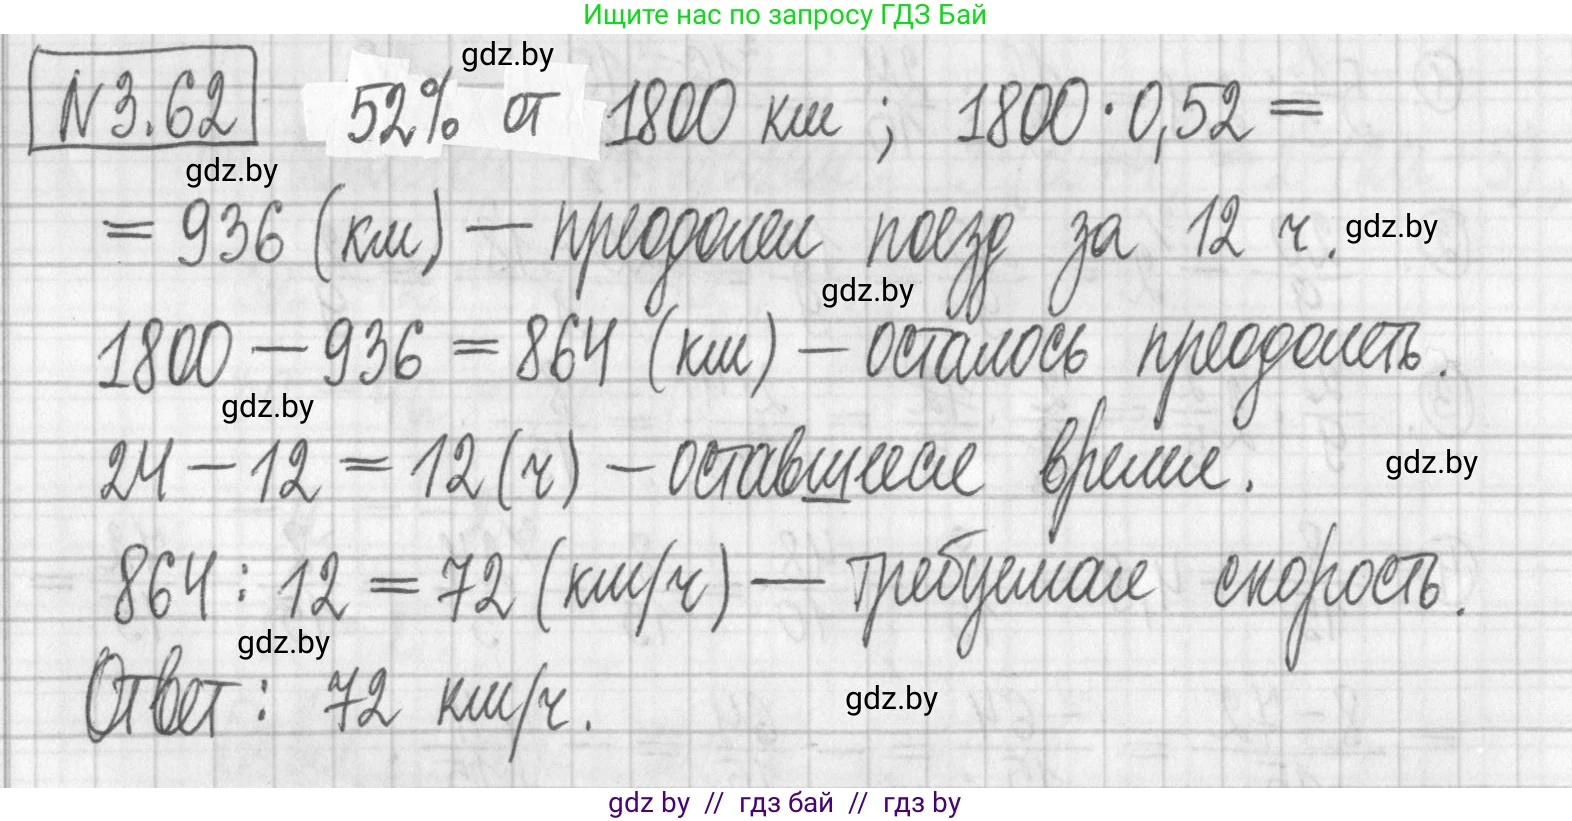 Ищите нас по запросу ГДЗ Бай
gdz.by
N 3.62 52% от 1800 км ; 1800 · 0,52 =
gdz.by
= 936 (км) — преодолел поезд за 12 ч. gdz.by
gdz.by
1800 — 936 = 864 (км) — осталось преодолеть.
gdz.by
24 — 12 = 12 (ч) — оставшееся время. gdz.by
864 : 12 = 72 (км/ч) — требуемая скорость.
gdz.by
Ответ : 72 км/ч. gdz.by
gdz by // гдз бай // гдз by